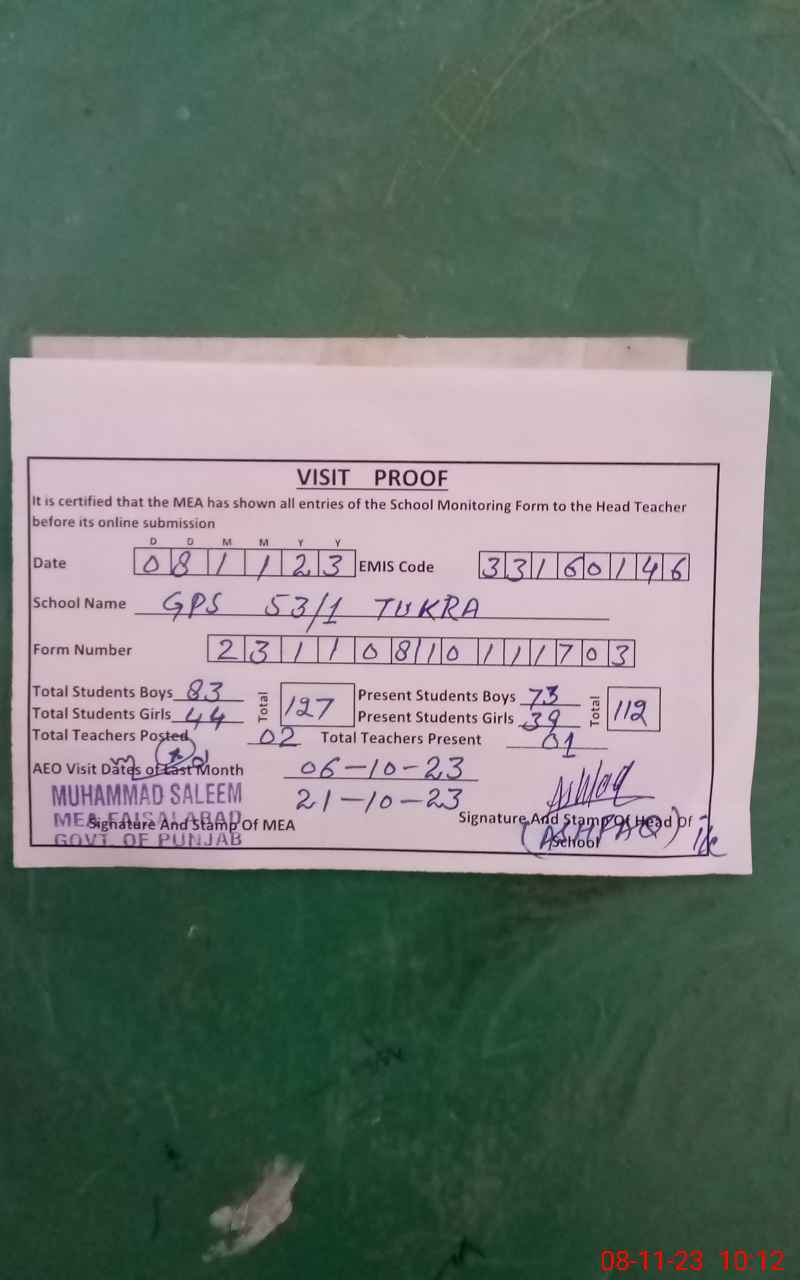 VISIT PROOF
It is certified that the MEA has shown all entries of the School Monitoring Form to the Head Teacher
before its online submission
D D M M Y Y
Date 0 8 1 1 2 3 EMIS Code 3 3 1 6 0 1 4 6
School Name GPS 53/1 TUKRA
Form Number 2 3 1 1 0 8 1 0 1 1 1 7 0 3
Total Students Boys 83 Total 127 Present Students Boys 73 Total 112
Total Students Girls 44 Present Students Girls 39
Total Teachers Posted 02 Total Teachers Present 01
AEO Visit Dates of Last Month 06-10-23
21-10-23
MUHAMMAD SALEEM
MEA FAISALABAD
GOVT. OF PUNJAB
Signature And Stamp Of MEA
Signature And Stamp Of Head of
School
(ASHFAQ)
08-11-23 10:12